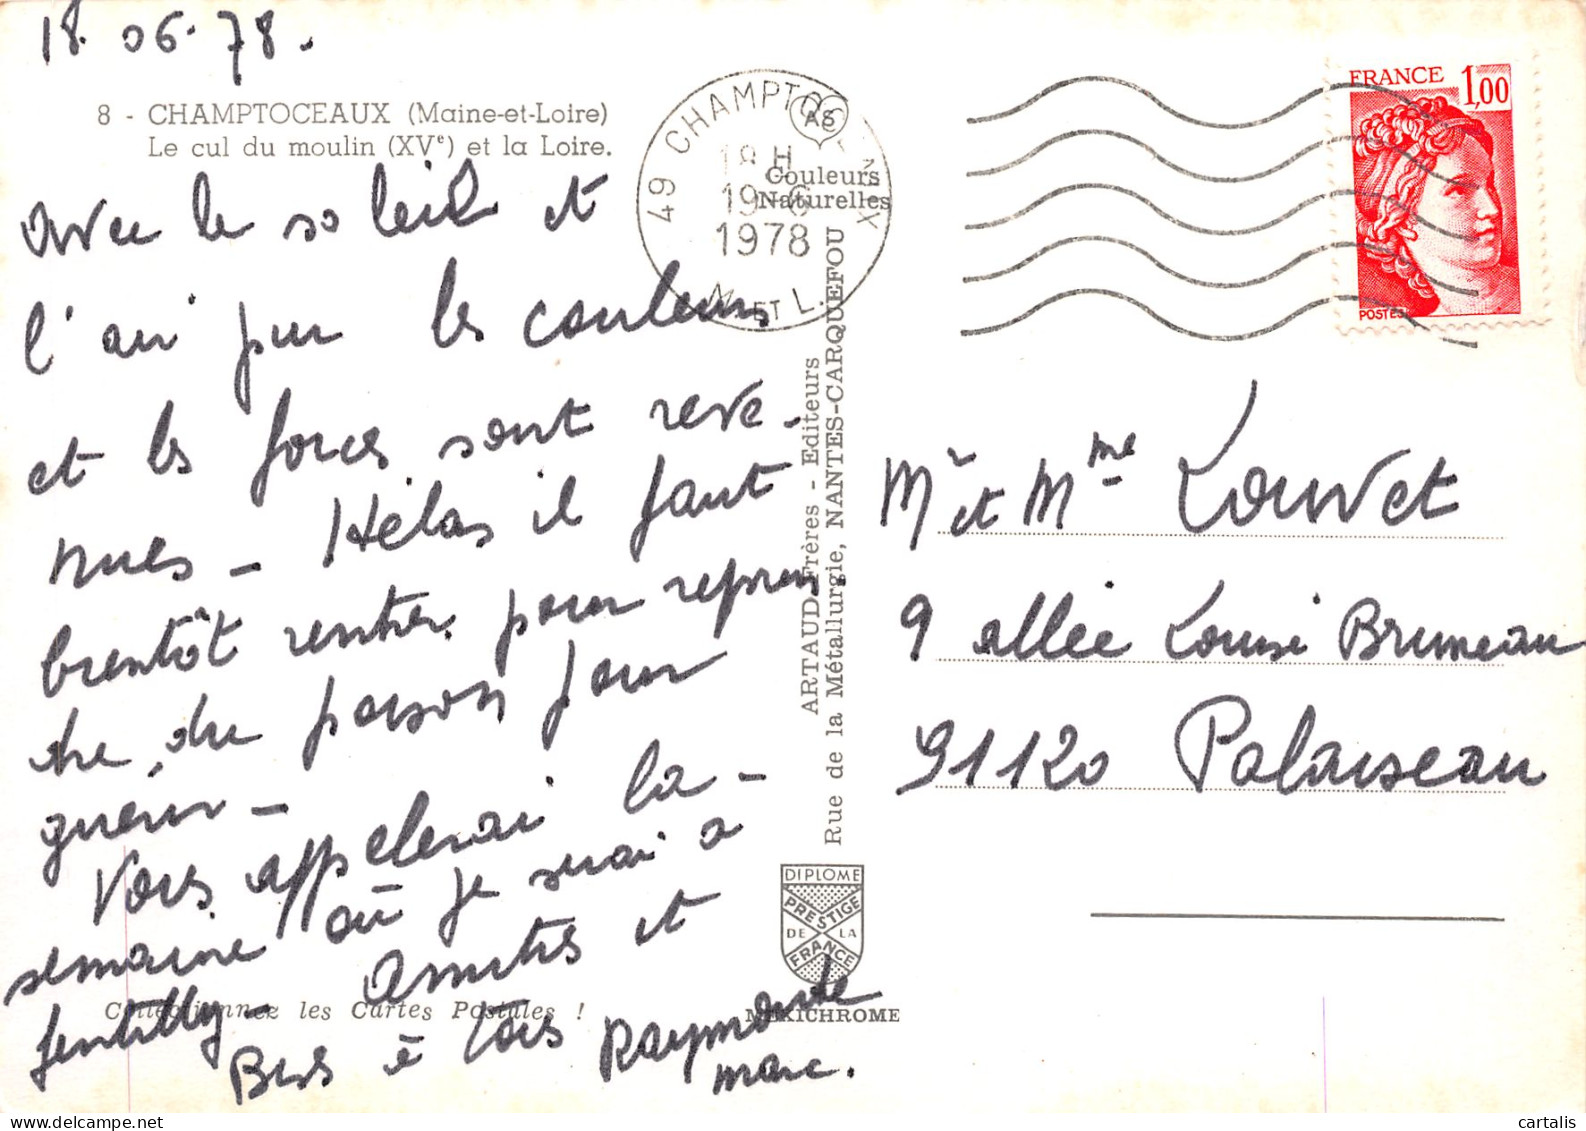 18.06.78.
8 - CHAMPTOCEAUX (Maine-et-Loire)
Le cul du moulin (XVe) et la Loire.
Avec le soleil et
l'air pur les couleurs
et les forces sont reve-
nues - Hélas il faut
bientôt rentrer pour repren
dre du poison pour
guérir -
Vous appelerai la -
semaine où je serai a
Gentilly - Amitiés et
Bises à tous Raymonde
Marc.
Collectionnez les Cartes Postales !
49 CHAMPTOCEAUX
18 H
19 - 6
1978
M. ET L.
AS
DE
Couleurs
Naturelles
ARTAUD Frères - Editeurs
Rue de la Métallurgie, NANTES-CARQUEFOU
DIPLOME
PRESTIGE
DE LA
FRANCE
MEXICHROME
FRANCE 1,00
POSTES
Mr et Mme Louvet
9 allée Louise Bruneau
91120 Palaiseau
cartalis